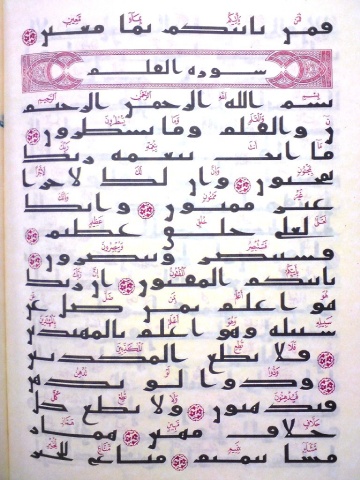 فمن يأتيكم بماء معين
سورة القلم
بسم الله الرحمن الرحيم
ن والقلم وما يسطرون
ما أنت بنعمة ربك
بمجنون وإن لك لأجرا
غير ممنون وإنك
لعلى خلق عظيم
فستبصر ويبصرون
بأييكم المفتون إن ربك
هو أعلم بمن ضل عن
سبيله وهو أعلم بالمهتدين
فلا تطع المكذبين
ودوا لو تدهن
فيدهنون ولا تطع كل
حلاف مهين هماز
مشاء بنميم مناع للخير